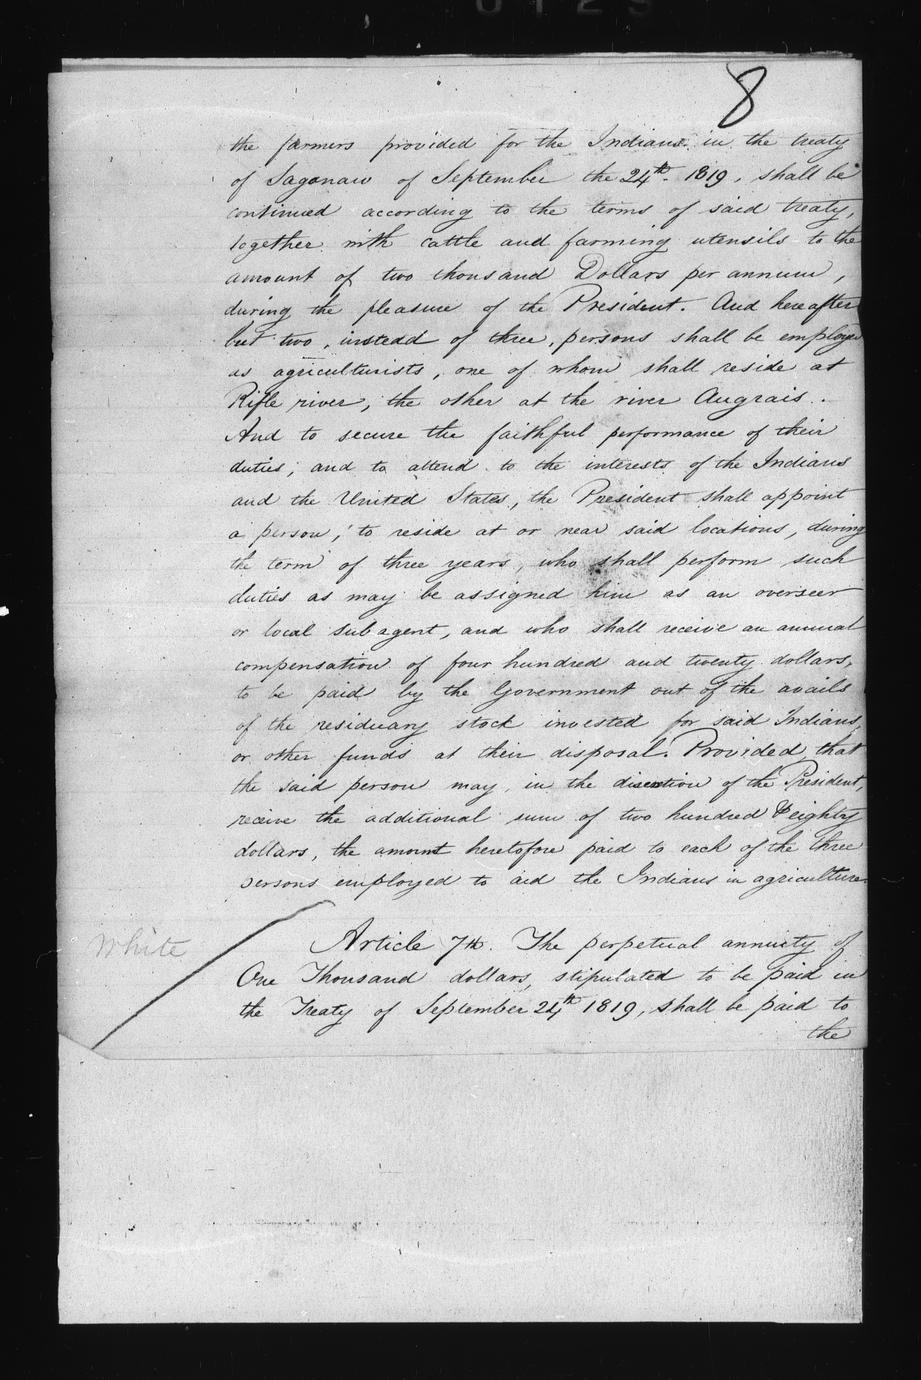 8
the farmers provided for the Indians in the treaty
of Saganaw of September the 24th. 1819, shall be
continued according to the terms of said treaty,
together with cattle and farming utensils to the
amount of two thousand Dollars per annum,
during the pleasure of the President. And hereafter
but two, instead of three, persons shall be employed
as agriculturists, one of whom shall reside at
Rifle river, the other at the river Augrais.
And to secure the faithful performance of their
duties, and to attend to the interests of the Indians
and the United States, the President shall appoint
a person, to reside at or near said locations, during
the term of three years, who shall perform such
duties as may be assigned him as an overseer
or local subagent, and who shall receive an annual
compensation of four hundred and twenty dollars,
to be paid by the Government out of the avails
of the residuary stock invested for said Indians,
or other funds at their disposal. Provided that
the said person may, in the discretion of the President,
receive the additional sum of two hundred & eighty
dollars, the amount heretofore paid to each of the three
persons employed to aid the Indians in agriculture.
White
Article 7th. The perpetual annuity of
One Thousand dollars, stipulated to be paid in
the Treaty of September 24th 1819, shall be paid to
the